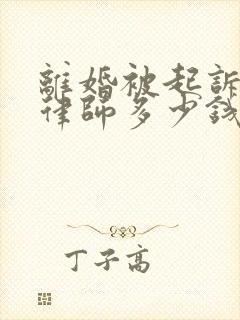 離婚被起訴
律師多少錢
丁子高